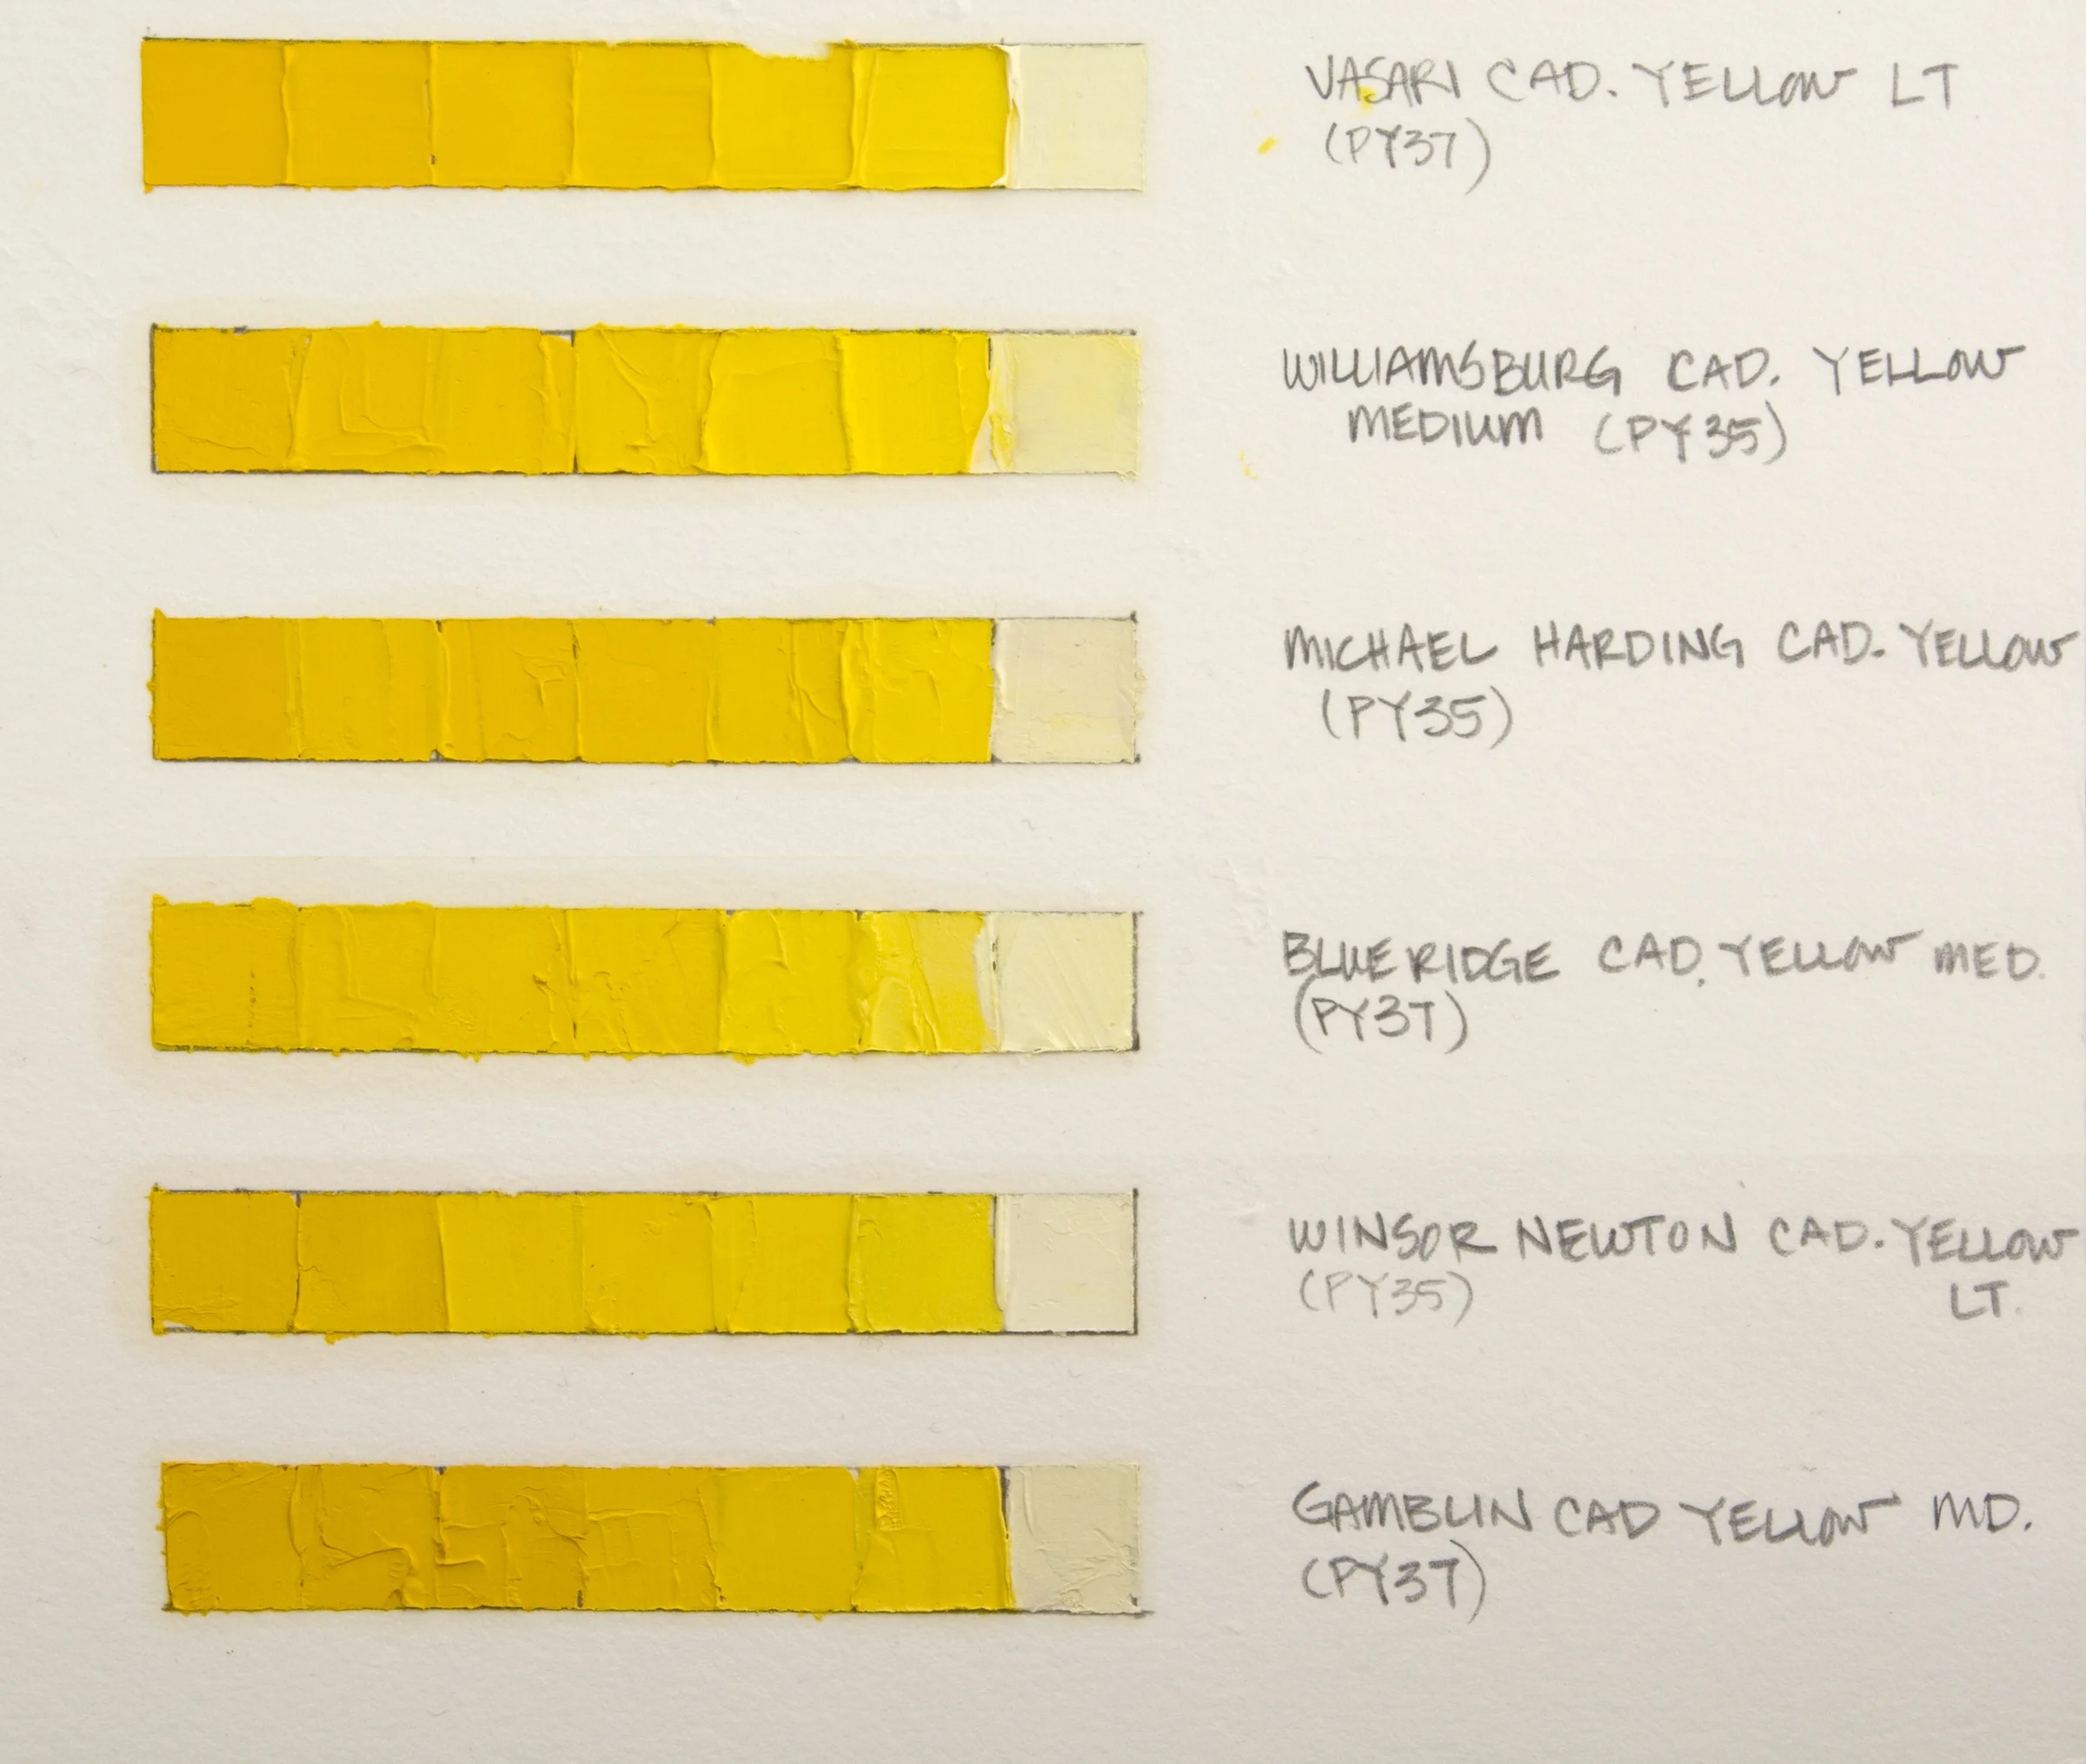 VASARI CAD. YELLOW LT
(PY37)
WILLIAMSBURG CAD. YELLOW
MEDIUM (PY35)
MICHAEL HARDING CAD. YELLOW
(PY35)
BLUE RIDGE CAD. YELLOW MED.
(PY37)
WINSOR NEWTON CAD. YELLOW
(PY35) LT.
GAMBLIN CAD YELLOW MD.
(PY37)